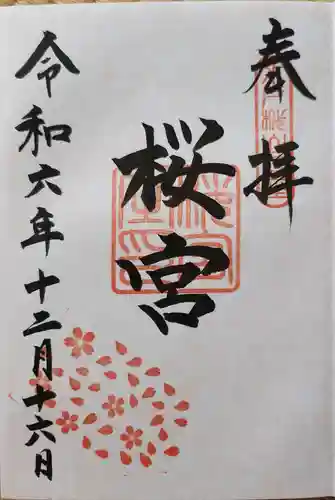 奉拝
桜宮
令和六年十二月十六日